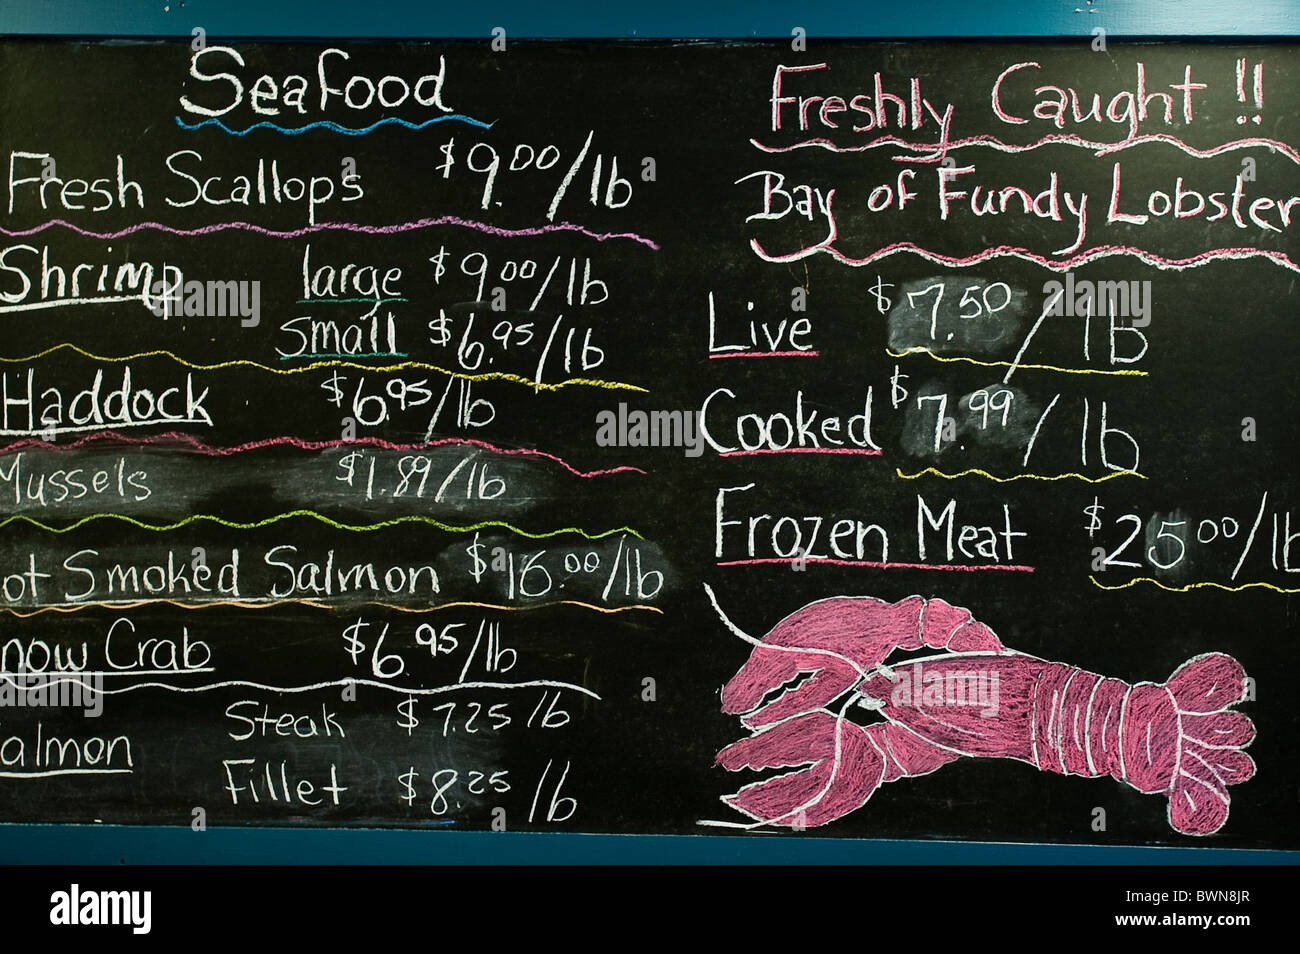 Seafood
Fresh Scallops $9.00/lb
Shrimp large $9.00/lb
small $6.95/lb
Haddock $6.95/lb
Mussels $1.89/lb
ot Smoked Salmon $16.00/lb
now Crab $6.95/lb
almon Steak $7.25 /lb
Fillet $8.25 /lb
Freshly Caught !!
Bay of Fundy Lobster
Live $7.50/lb
Cooked $7.99/lb
Frozen Meat $25.00/lb
alamy
Image ID: BWN8JR
www.alamy.com